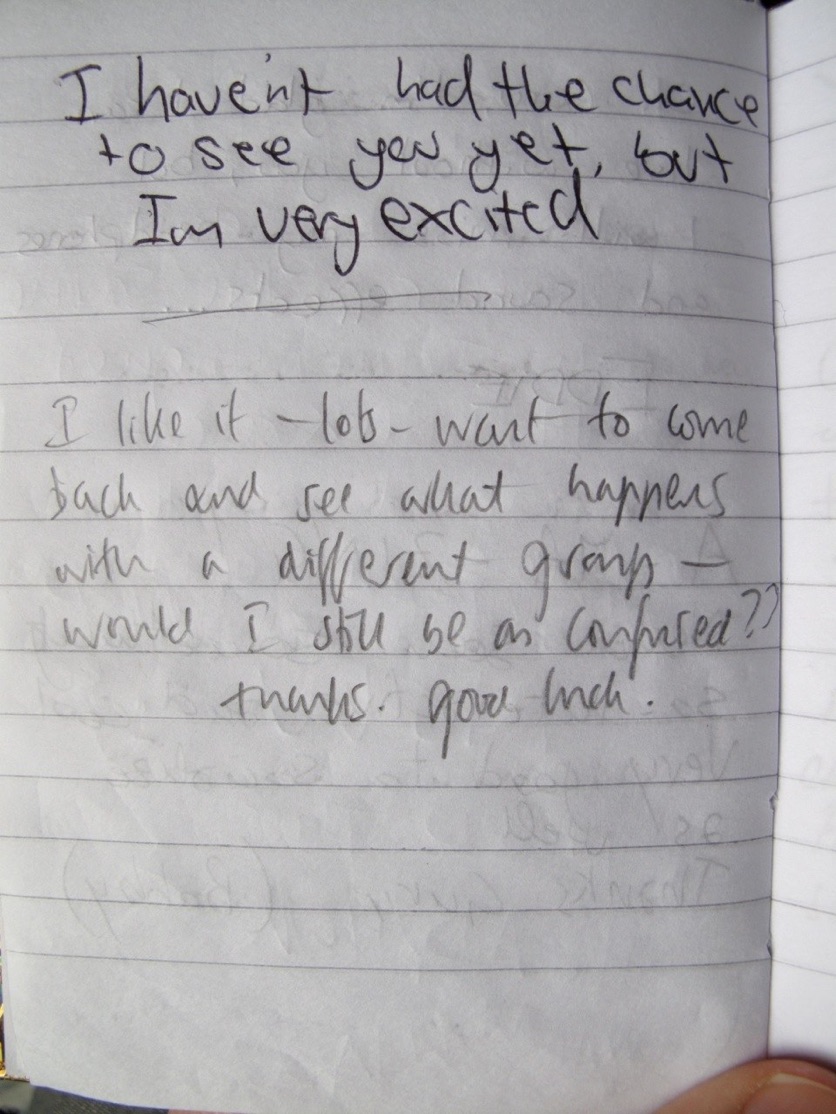 I have'nt had the chance
to see you yet, but
Im very excited
I like it – lots – want to come
back and see what happens
with a different group –
would I still be as confused??
thanks. good luck.